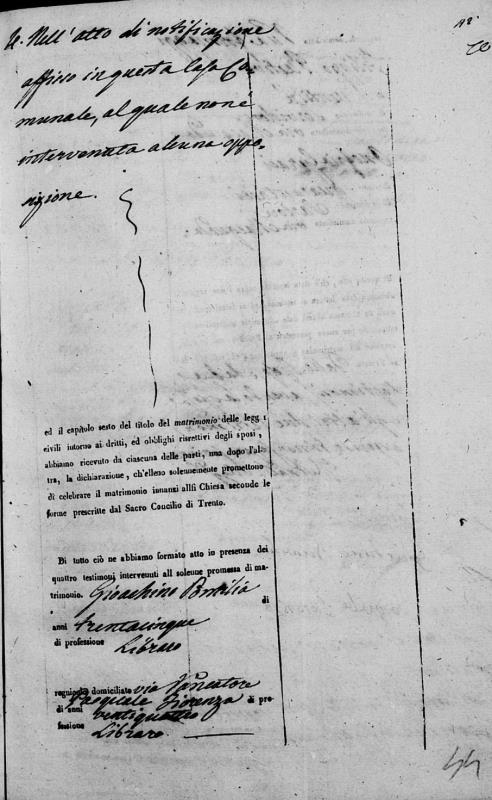 4. Nell'atto di notificazione
affisso in questa Casa Co
munale, al quale non è
intervenuta alcuna oppo-
sizione.
ed il capitolo sesto del titolo del matrimonio delle leggi
civili intorno ai dritti, ed obblighi rispettivi degli sposi,
abbiamo ricevuto da ciascuna delle parti, una dopo l'al-
tra, la dichiarazione, ch'elleno solennemente promettono
di celebrare il matrimonio innanzi alla Chiesa secondo le
forme prescritte dal Sacro Concilio di Trento.
Di tutto ciò ne abbiamo formato atto in presenza dei
quattro testimonj intervenuti al solenne promessa di ma-
trimonio. Gioachino
di
anni trentacinque
di professione
Libraro
regnicolo domiciliato via
Pasquale Fiorenza di
di anni
ventiquattro di pro-
fessione
Libraro
44